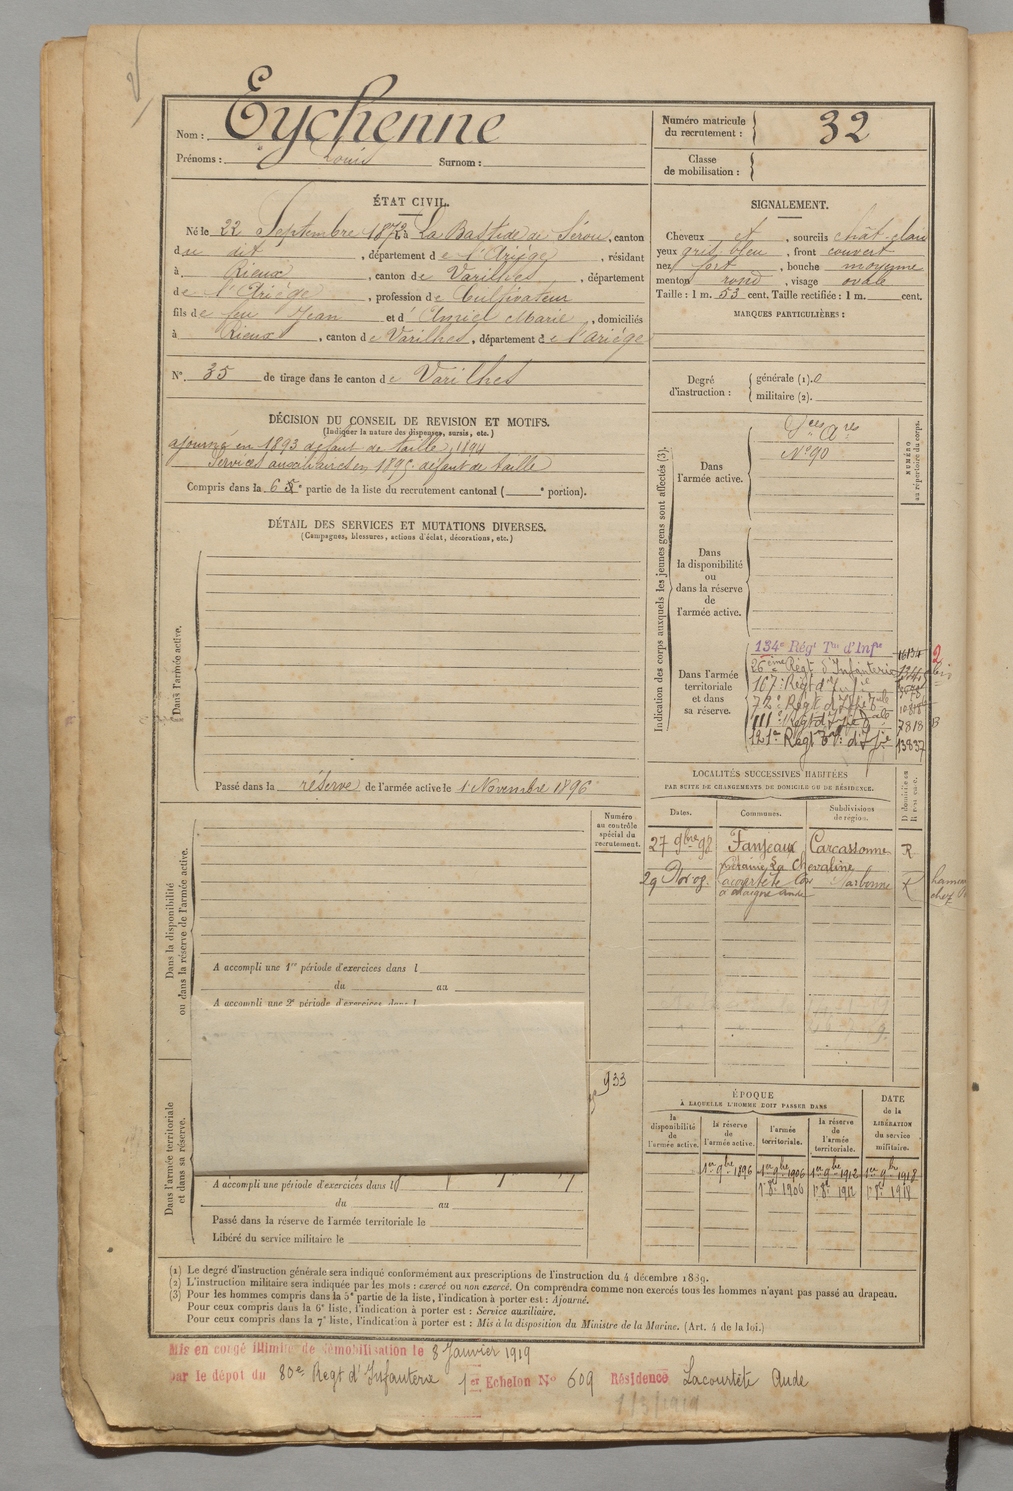 Nom : Eychenne
Prénoms : Louis Surnom :
Numéro matricule du recrutement : 32
Classe de mobilisation :
ÉTAT CIVIL.
Né le 22 Septembre 1873 à La Bastide de Sérou, canton
du dit, département de l'Ariége, résidant
à Rieux, canton de Varilhes, département
de l'Ariége, profession de Cultivateur
fils de feu Jean et d'Amiel Marie, domiciliés
à Rieux, canton de Varilhes, département de l'Ariége
N° 35 de tirage dans le canton de Varilhes
SIGNALEMENT.
Cheveux et, sourcils chât clair
yeux gris bleu, front couvert
nez fort, bouche moyenne
menton rond, visage ovale
Taille : 1 m. 53 cent. Taille rectifiée : 1 m. cent.
MARQUES PARTICULIÈRES :
Degré d'instruction : générale (1). 0
militaire (2).
DÉCISION DU CONSEIL DE REVISION ET MOTIFS.
(Indiquer la nature des dispenses, sursis, etc.)
ajourné en 1893 défaut de taille, 1894
Services auxiliaires en 1895 défaut de taille
Compris dans la 6e partie de la liste du recrutement cantonal ( e portion).
DÉTAIL DES SERVICES ET MUTATIONS DIVERSES.
(Campagnes, blessures, actions d'éclat, décorations, etc.)
Dans l'armée active.
Passé dans la réserve de l'armée active le 1 Novembre 1896
Indication des corps auxquels les jeunes gens sont affectés (3).
NUMÉRO au répertoire du corps.
Dans l'armée active.
Sces Ares
N° 90
Dans la disponibilité ou dans la réserve de l'armée active.
Dans l'armée territoriale et dans sa réserve.
134e Régt Tal d'Infie 16134
26ème Régt d'Infanterie
167e Régt d'Infie
72e Régt d'Infie
111e Régt d'Infie 7818
121e Régt d'Infie 13837
LOCALITÉS SUCCESSIVES HABITÉES
PAR SUITE DE CHANGEMENTS DE DOMICILE OU DE RÉSIDENCE.
Dates. Communes. Subdivisions de région. D domicile ou R résidence.
27 9bre 98 Fanjeaux Carcassonne R
La Chevaline
29 Nov 09 Lacourtète Narbonne R
Numéro au contrôle spécial du recrutement.
933
Dans la disponibilité ou dans la réserve de l'armée active.
A accompli une 1re période d'exercices dans l
du au
A accompli une 2e période d'exercices dans l
Dans l'armée territoriale et dans sa réserve.
A accompli une période d'exercices dans l
du au
Passé dans la réserve de l'armée territoriale le
Libéré du service militaire le
ÉPOQUE
À LAQUELLE L'HOMME DOIT PASSER DANS
la disponibilité de l'armée active. la réserve de l'armée active. l'armée territoriale. la réserve de l'armée territoriale. DATE de la LIBÉRATION du service militaire.
1er 9bre 1896 1er 9bre 1906 1er 9bre 1912 1er 9bre 1918
1er 8e 1906 1er 8e 1912 1er 8e 1918
(1) Le degré d'instruction générale sera indiqué conformément aux prescriptions de l'instruction du 4 décembre 1889.
(2) L'instruction militaire sera indiquée par les mots : exercé ou non exercé. On comprendra comme non exercés tous les hommes n'ayant pas passé au drapeau.
(3) Pour les hommes compris dans la 5e partie de la liste, l'indication à porter est : Ajourné.
Pour ceux compris dans la 6e liste, l'indication à porter est : Service auxiliaire.
Pour ceux compris dans la 7e liste, l'indication à porter est : Mis à la disposition du Ministre de la Marine. (Art. 4 de la loi.)
Mis en congé illimité de démobilisation le 8 Janvier 1919
par le dépôt du 80e Régt d'Infanterie 1er Echelon N° 609 Résidence Lacourtète Aude
1/3/1919